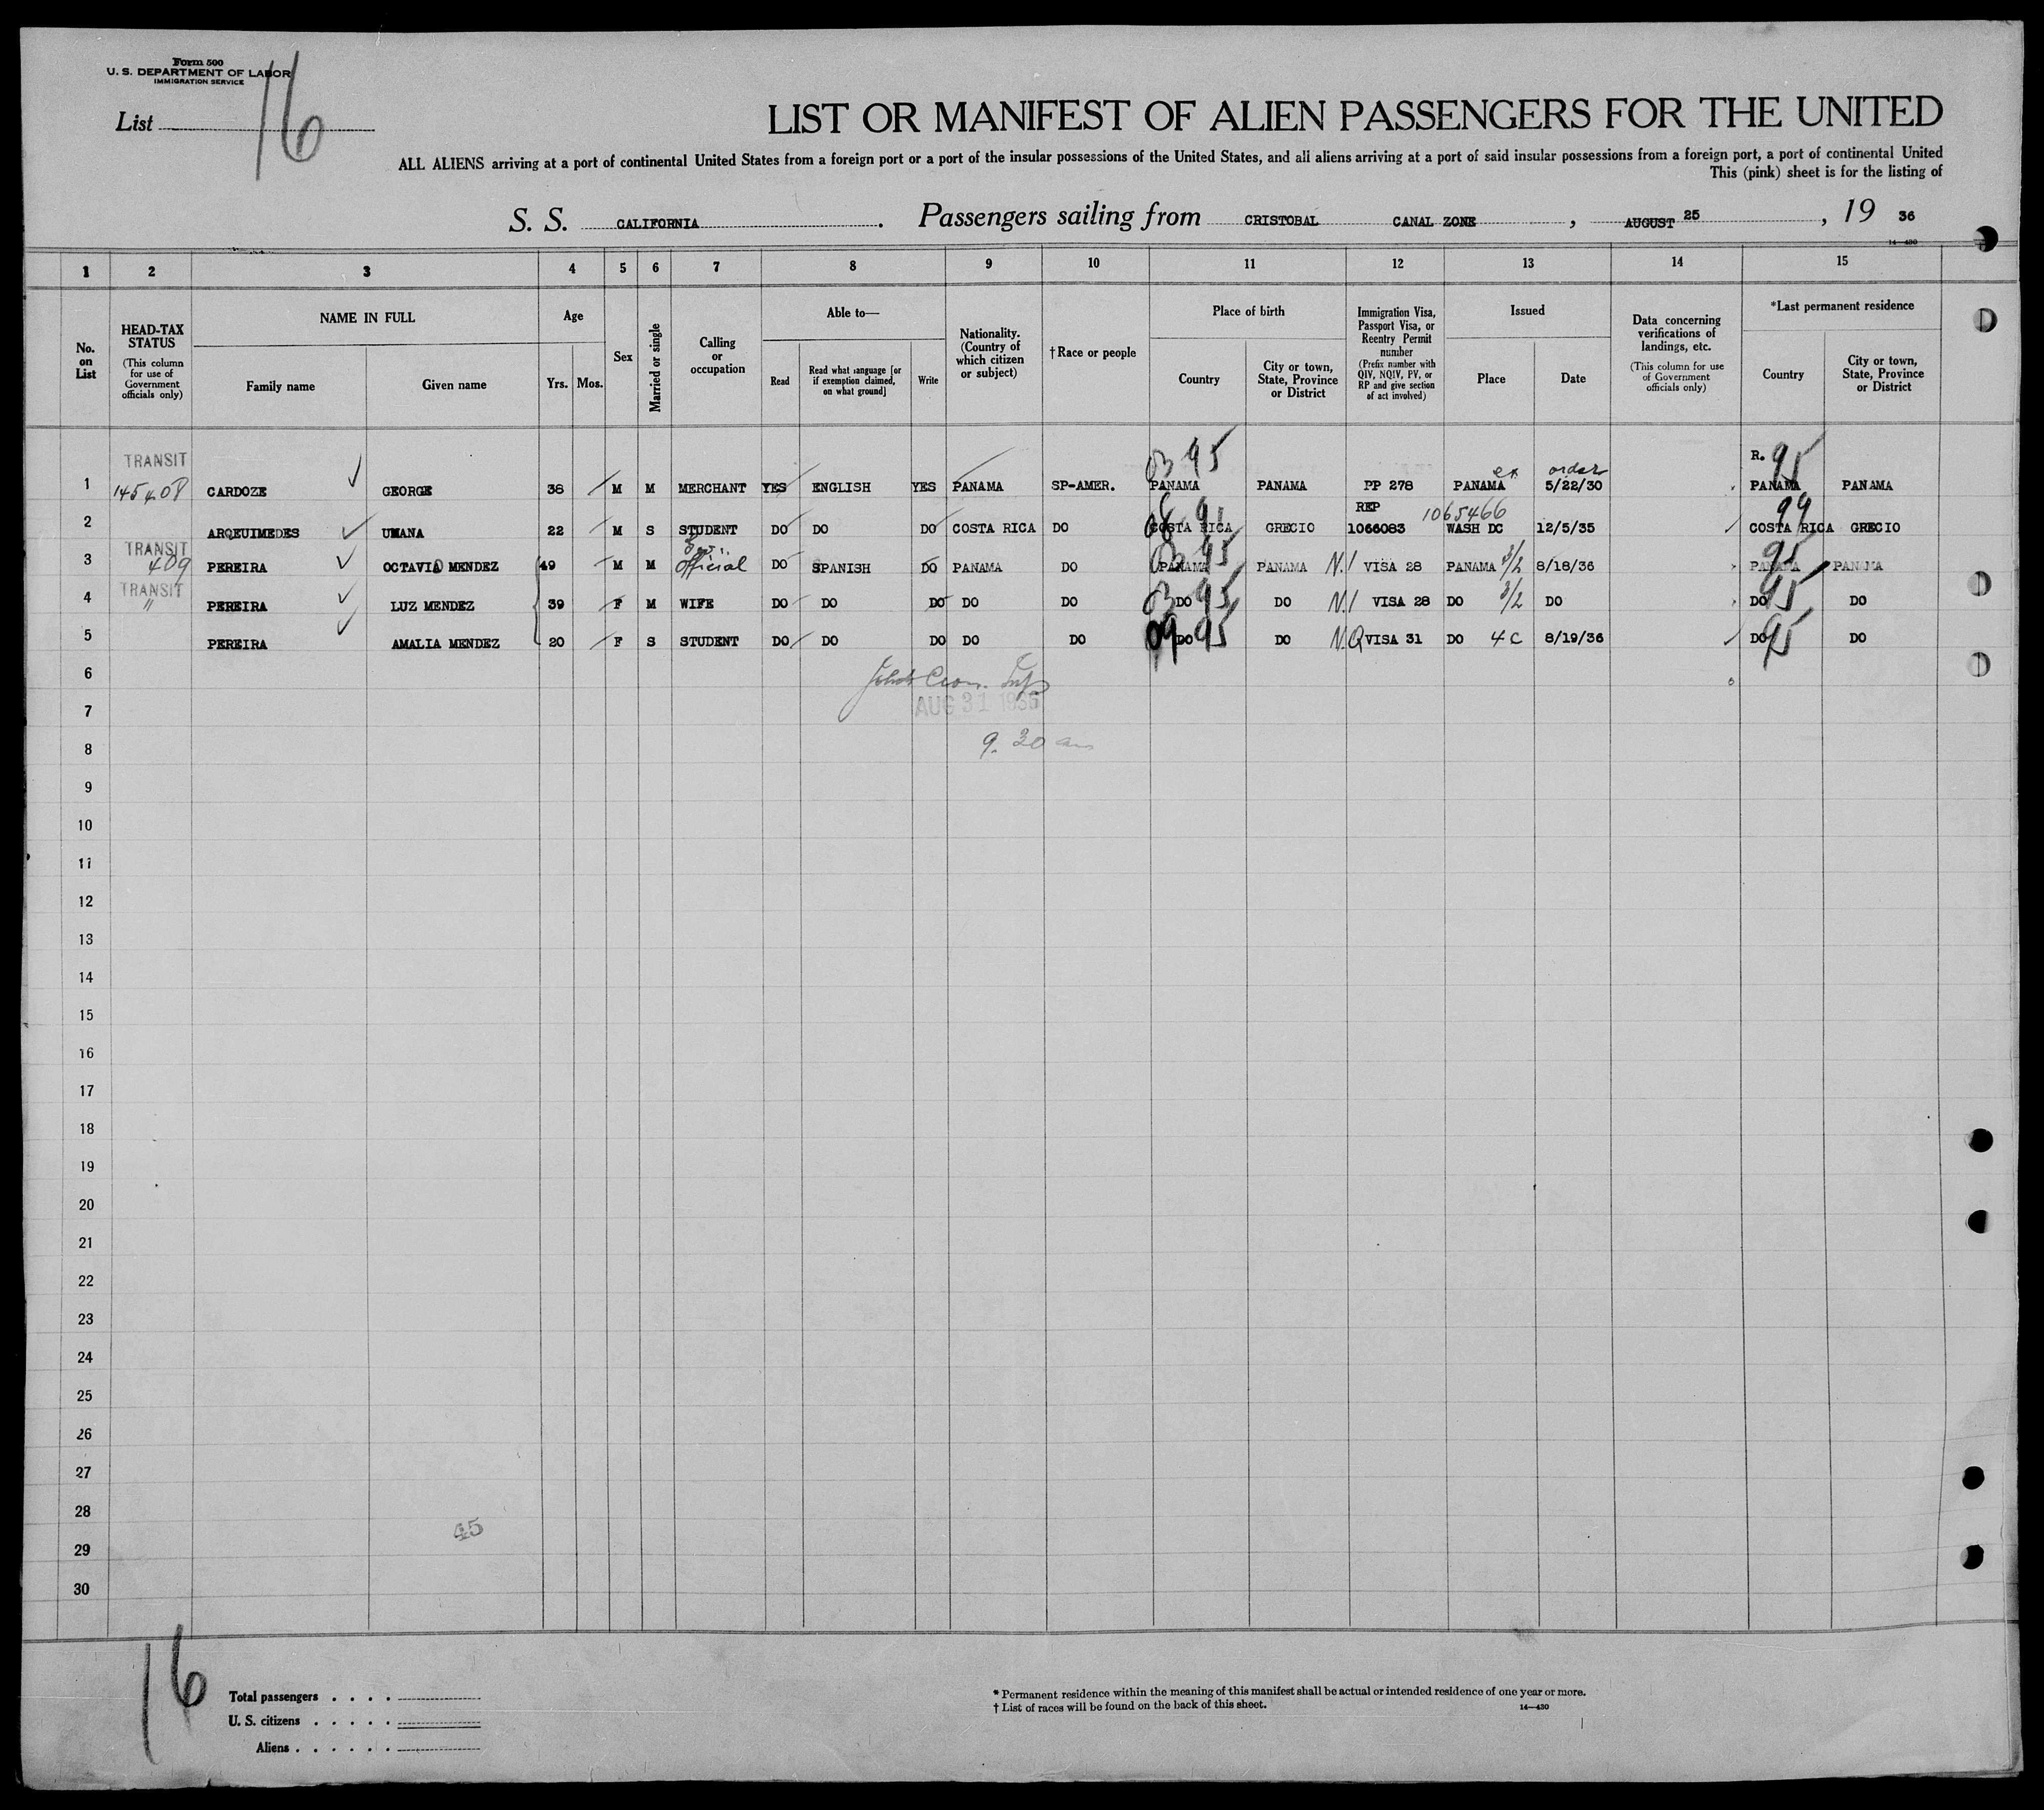 Form 500
U. S. DEPARTMENT OF LABOR
IMMIGRATION SERVICE
List 16
LIST OR MANIFEST OF ALIEN PASSENGERS FOR THE UNITED
ALL ALIENS arriving at a port of continental United States from a foreign port or a port of the insular possessions of the United States, and all aliens arriving at a port of said insular possessions from a foreign port, a port of continental United
This (pink) sheet is for the listing of
S. S. CALIFORNIA. Passengers sailing from CRISTOBAL CANAL ZONE, AUGUST 25, 19 36
14—430
1 2 3 4 5 6 7 8 9 10 11 12 13 14 15
No. on List
HEAD-TAX STATUS (This column for use of Government officials only)
NAME IN FULL
Family name
Given name
Age
Yrs. Mos.
Sex
Married or single
Calling or occupation
Able to—
Read
Read what language [or if exemption claimed, on what ground]
Write
Nationality. (Country of which citizen or subject)
†Race or people
Place of birth
Country
City or town, State, Province or District
Immigration Visa, Passport Visa, or Reentry Permit number (Prefix number with QIV, NQIV, PV, or RP and give section of act involved)
Issued
Place
Date
Data concerning verifications of landings, etc. (This column for use of Government officials only)
*Last permanent residence
Country
City or town, State, Province or District
TRANSIT 03 95 order R. 95
1 145408 CARDOZE GEORGE 38 M M MERCHANT YES ENGLISH YES PANAMA SP-AMER. PANAMA PANAMA PP 278 PANAMA 5/22/30 PANAMA PANAMA
REP 1065466 99
2 ARQEUIMEDES UMANA 22 M S STUDENT DO DO DO COSTA RICA DO COSTA RICA GRECIO 1066083 WASH DC 12/5/35 COSTA RICA GRECIO
TRANSIT 95 95
3 409 PEREIRA OCTAVIO MENDEZ 49 M M Official DO SPANISH DO PANAMA DO PANAMA PANAMA N.I VISA 28 PANAMA 3/2 8/18/36 PANAMA PANAMA
TRANSIT 03 95 95
4 " PEREIRA LUZ MENDEZ 39 F M WIFE DO DO DO DO DO DO DO N.I VISA 28 DO 3/2 DO DO DO
09 95 95
5 PEREIRA AMALIA MENDEZ 20 F S STUDENT DO DO DO DO DO DO DO N.Q VISA 31 DO 4C 8/19/36 DO DO
6
7 AUG 31 1936
8 9.30 am
9
10
11
12
13
14
15
16
17
18
19
20
21
22
23
24
25
26
27
28 45
29
30
16
Total passengers
U. S. citizens
Aliens
* Permanent residence within the meaning of this manifest shall be actual or intended residence of one year or more.
† List of races will be found on the back of this sheet. 14—430